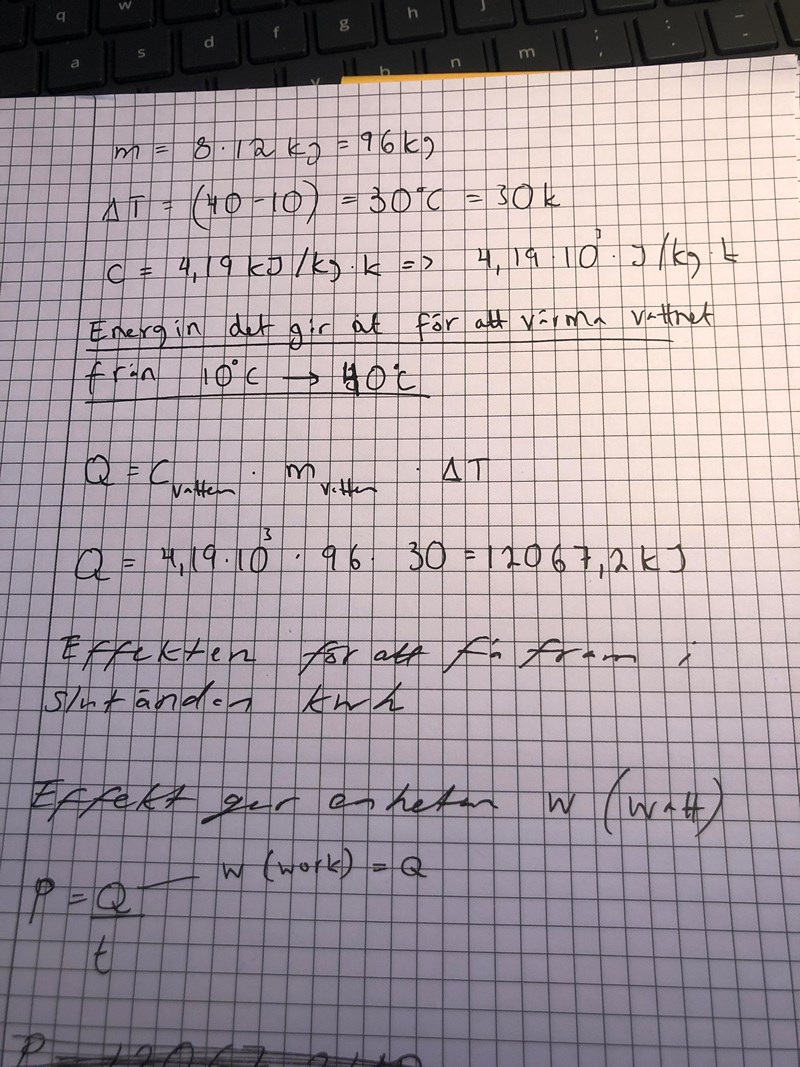 q w g h J
a s d f g n m ; : -
m = 8·12 kg = 96 kg
ΔT = (40-10) = 30°C = 30 k
C = 4,19 kJ/kg·k => 4,19·10³·J/kg·k
Energin det går åt för att värma vattnet
från 10°C → 40°C
Q = C vatten · m vatten · ΔT
Q = 4,19·10³ · 96 · 30 = 12067,2 kJ
Effekten för att få fram i
slutändan kwh
Effekt ger enheten W (Watt)
P = Q/t — W (work) = Q